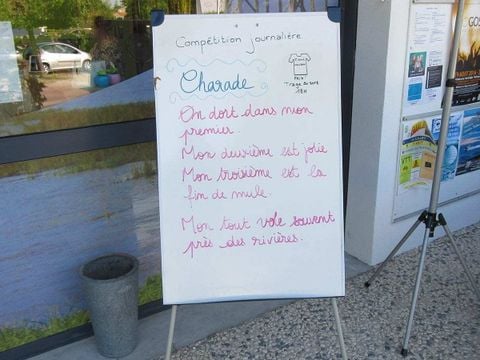 Compétition journalière
Charade
Prix
Tirage au sort
18H
On dort dans mon
premier
Mon deuxième est jolie
Mon troisième est la
fin de mule.
Mon tout vole souvent
près des rivières.
GOS